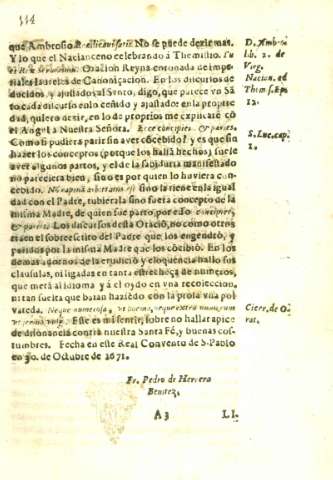 que Ambrosio No se puede dezir mas.
Y lo que el Nacianceno celebrando à Themistio.
Oracion Reyna coronada de impe-
riales laureles de Canonizacion. En los discursos de
ducidos, y ajustados al Santo, digo, que parece vn Sã
to cada discurso en lo ceñido y ajustado en la proprie
dad, quiero dezir, en lo de proprios me explicarè cõ
el Angel a Nuestra Señora. Ecce concipies, & paries.
Como si pudiera parir sin aver cõcebido? y es que sin
hazer los conceptos (porque los hallà hechos) suele
aver algunos partos, y el de la sabiduria manifestado
no pareciera bien, sino es por quien lo huviera con-
cebido. Nõ rapinã arbitratus est sino la tiene en la igual
dad con el Padre, tubierala sino fuera concepto de la
misma Madre, de quien fue parto, por esso concipies,
& paries. Los discursos desta Oraciõ, no como otros
traen el sobrescrito del Padre que los engendrò, y
paridos por la misma Madre que los cõcibiò. En los
demas adornos de la erudicion y eloquencia hallo sus
clausulas, ni ligadas en tanta estrecheça de numeros,
que metã al idioma y â el oydo en vna recoleccion,
ni tan suelta que batan haziẽdo con la prosa vna pol
vareda. Neque numerosa,
Este es mi sentir, sobre no hallar apice
de disonancia contra nuestra Santa Fé, y buenas cos-
tumbres. Fecha en este Real Convento de S. Pablo
en 30. de Octubre de 1671.
Fr. Pedro de Herrera
Benitez.
A3 LI.
D. Ambro
lib. 2. de
Virg.
Nacian. ad
Them s. Epi
12.
S. Luc. cap.
1.
Cicer. de O-
rat.